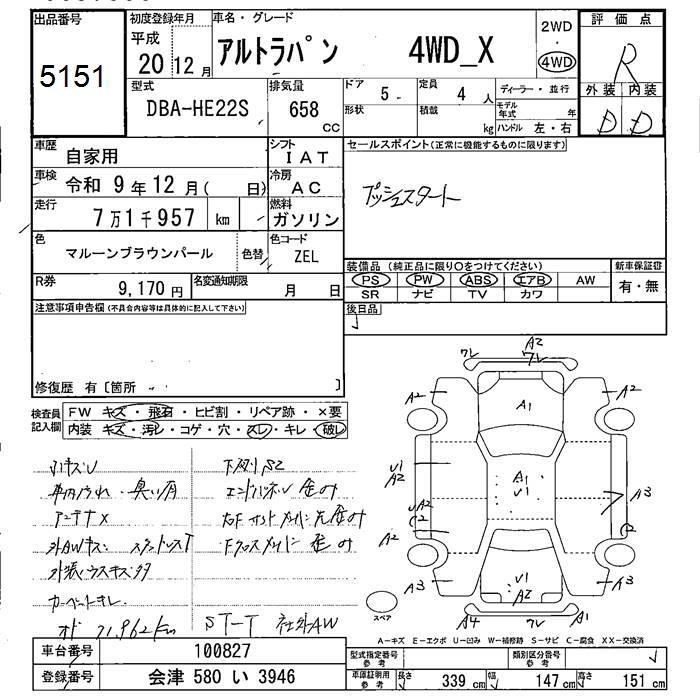 出品番号
5151
初度登録年月
平成
20 12 月
車名・グレード
アルトラパン 4WD_X
2WD
4WD
評価点
R
外装 内装
D D
型式
DBA-HE22S
排気量
658
cc
ドア 5
形状
定員 4 人
積載
kg
ディーラー・並行
モデル年式 年
ハンドル 左・右
車歴
自家用
シフト
I A T
車検
令和 9 年 12 月( 日)
冷房
A C
走行
7 万 1 千 957 km
燃料
ガソリン
色
マルーンブラウンパール
色替
色コード
ZEL
R券
9,170 円
名変通知期限
月 日
セールスポイント(正常に機能するものに限ります)
プッシュスタート
装備品(純正品に限り○をつけてください)
PS PW ABS エアB AW
SR ナビ TV カワ
新車保証書
有・無
後日品
注意事項申告欄(不具合内容等は具体的に記入して下さい)
修復歴 有 [箇所 ]
検査員
記入欄
FW キズ・飛石・ヒビ割・リペア跡・×要
内装 キズ・汚レ・コゲ・穴・スレ・キレ・破レ
車内汚れ・臭い有
アンテナ×
カーペットキレ
オド 71,962km
下廻りS2
エンドパネル 歪み
ST-T 社外AW
A2
ワレ ワレ
A2 A1 A2
U1
A2
A1
U1
A3
A2
C2
A2
A3 U1
A2 A3
A4 ワレ A1
スペア
A-キズ E-エクボ U-凹み W-補修跡 S-サビ C-腐食 XX-交換済
車台番号
100827
登録番号
会津 580 い 3946
型式指定番号
参考
類別区分番号
参考
車庫証明用
参考
長さ 339 cm
幅 147 cm
高さ 151 cm